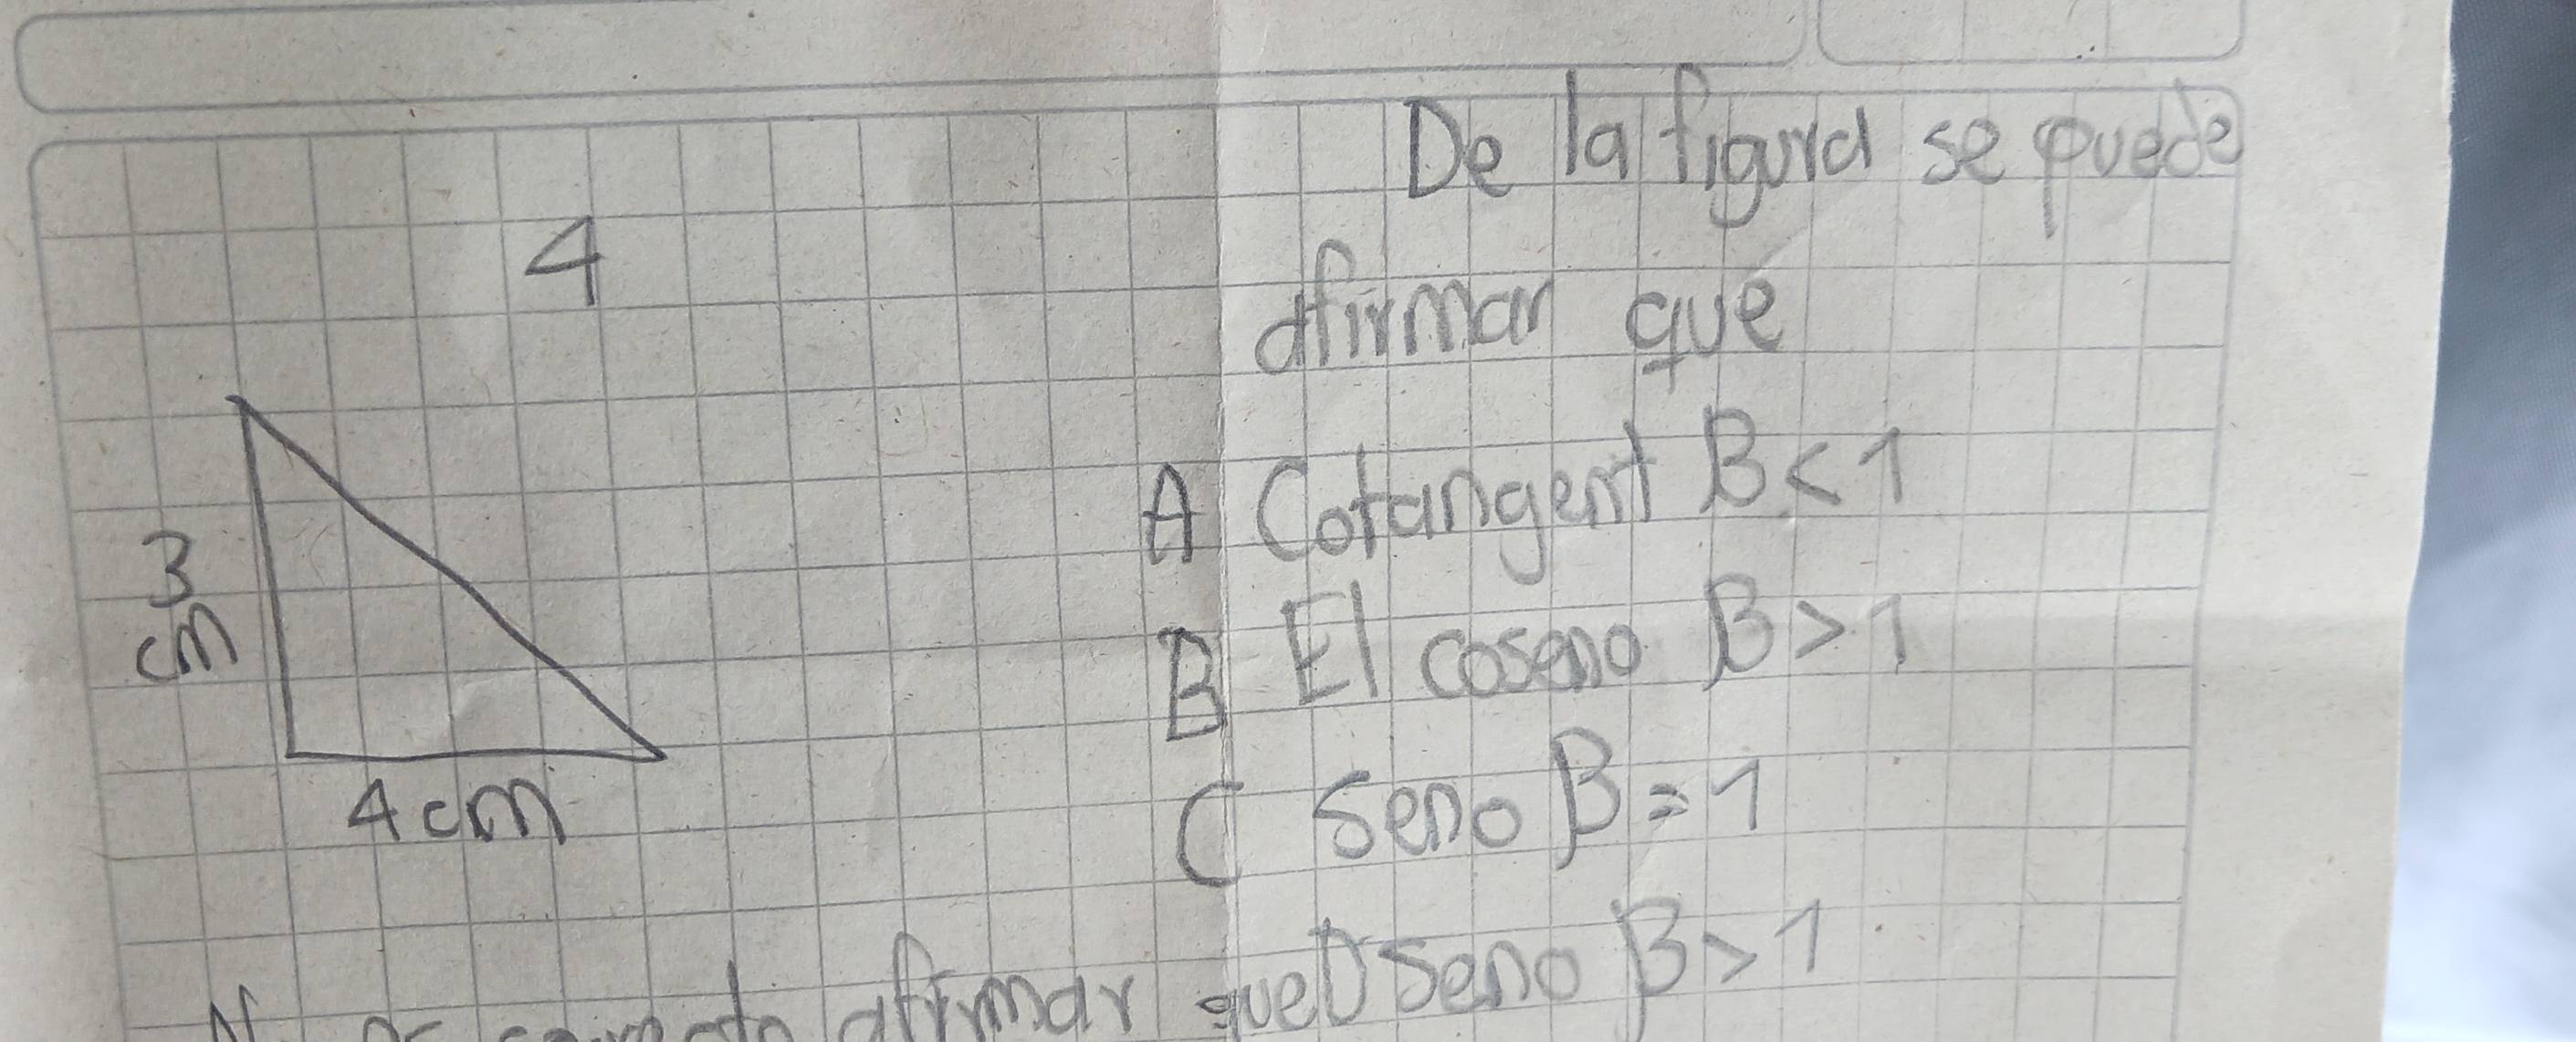 4
3
cm
4cm
De la figura se puede
afirmar que
A Cotangent β < 1
B El coseno β > 1
C Seno β = 1
D Seno β > 1
afirmar que